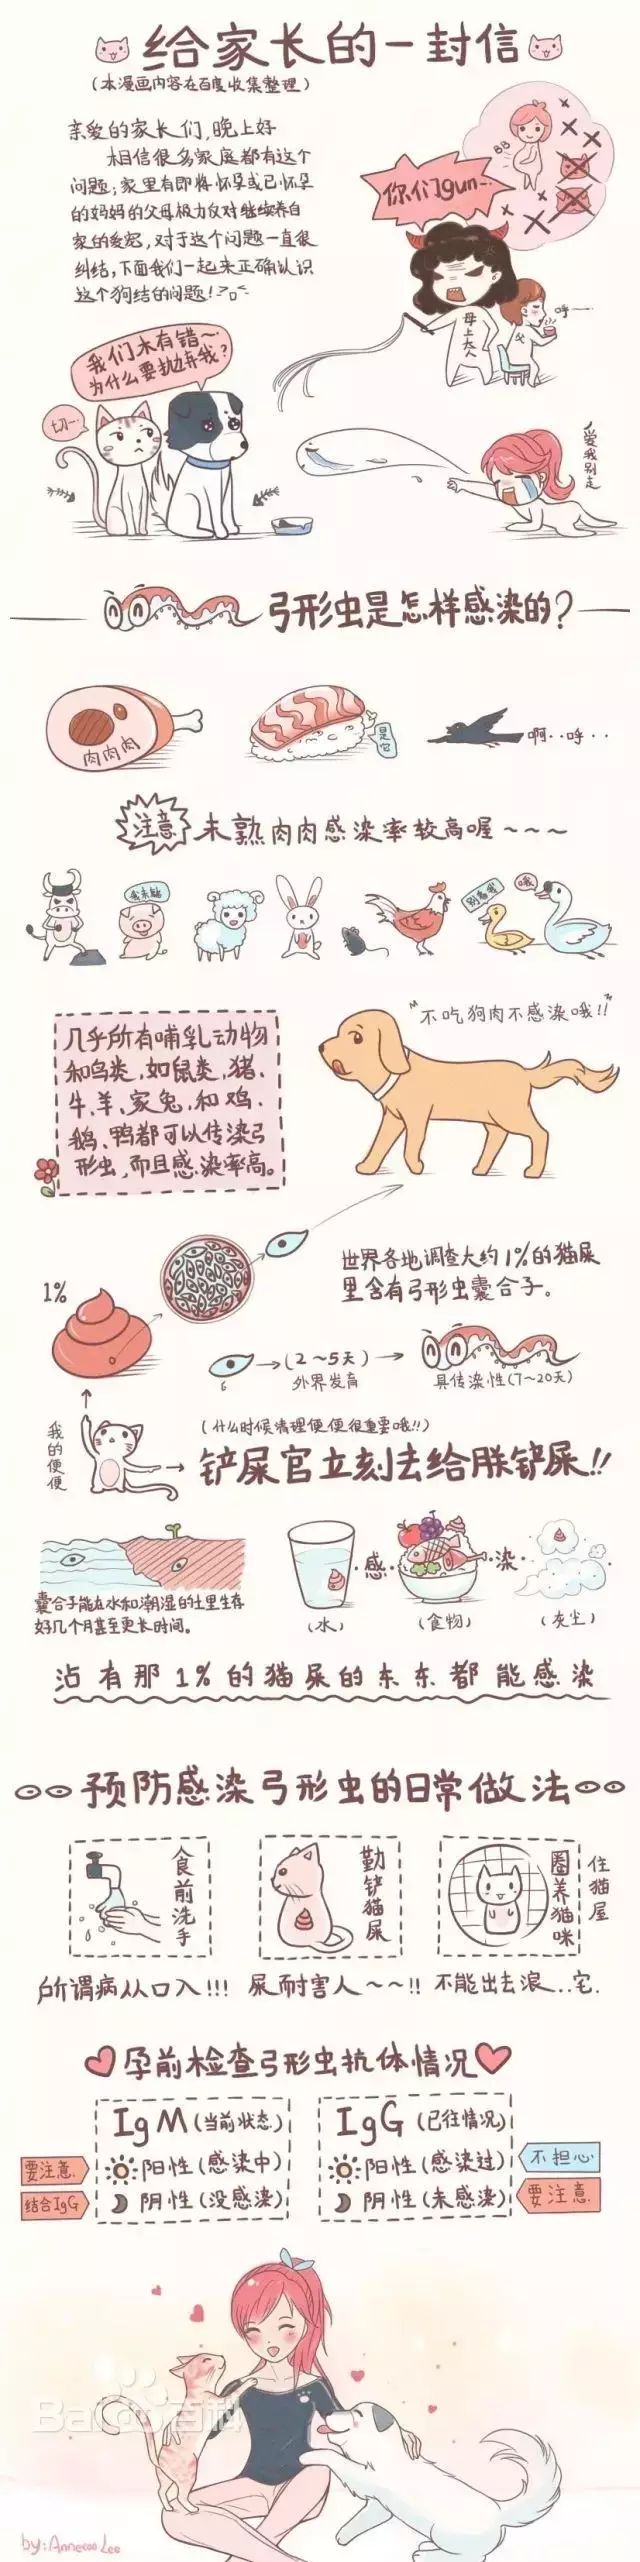 给家长的一封信
(本漫画内容在百度收集整理)
亲爱的家长们,晚上好
相信很多家庭都有这个
问题;家里有即将怀孕或已怀孕
的妈妈的父母极力反对继续养自
家的爱宠,对于这个问题一直很
纠结,下面我们一起来正确认识
这个狗结的问题!
BB
你们gun~
母上大人
父
呼~
我们木有错~
为什么要抛弃我?
切~
爱我别走
弓形虫是怎样感染的?
肉肉肉
是它
啊..呼..
注意
未熟肉肉感染率较高喔~~~
我未熟
别看我
哦
几乎所有哺乳动物
和鸟类,如鼠类,猪、
牛、羊、家兔,和鸡、
鹅、鸭都可以传染弓
形虫,而且感染率高。
"不吃狗肉不感染哦!!"
1%
世界各地调查大约1%的猫屎
里含有弓形虫囊合子。
(2~5天)
外界发育
具传染性(7~20天)
我的便便
(什么时候清理便便很重要哦!!)
铲屎官立刻去给朕铲屎!!
囊合子能在水和潮湿的土里生存
好几个月甚至更长时间。
·感·
·染·
(水)
(食物)
(灰尘)
沾有那1%的猫屎的东东都能感染
预防感染弓形虫的日常做法
食前洗手
勤铲猫屎
圈养猫咪
住猫屋
所谓病从口入!!!
屎而耐害人~~!!
不能出去浪...宅.
孕前检查弓形虫抗体情况
IgM(当前状态)
IgG(已往情况)
要注意
阳性(感染中)
阳性(感染过)
不担心
结合IgG
阴性(没感染)
阴性(未感染)
要注意
Bai百科
by:Anneroo Lee